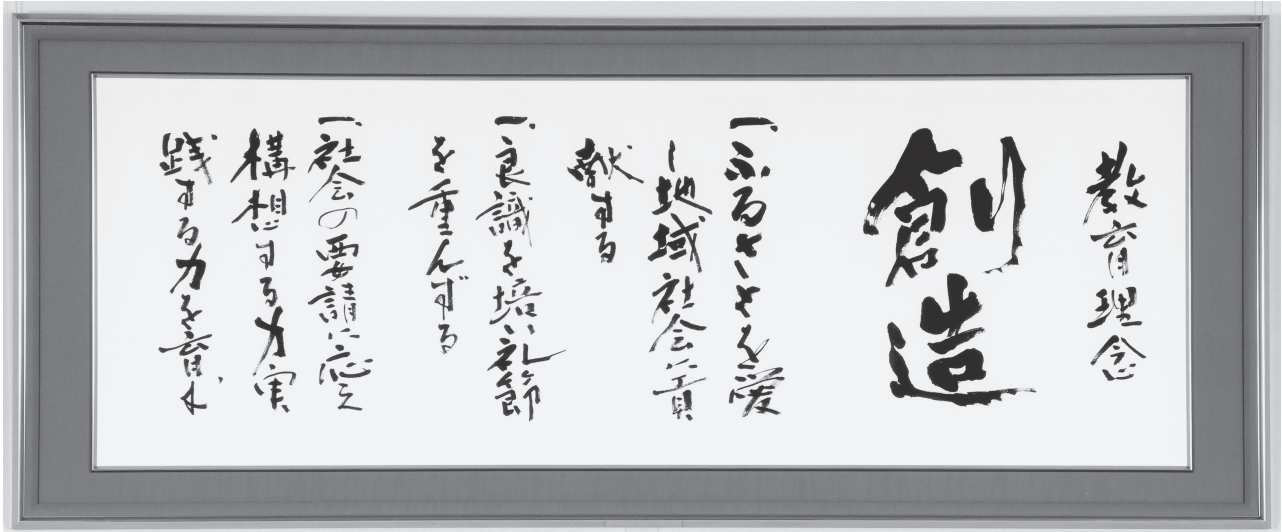 教育理念
創造
一、ふるさとを愛
し地域社会に貢
献する
一、良識を培い礼節
を重んずる
一、社会の要請に応え
構想する力実
践する力を育む